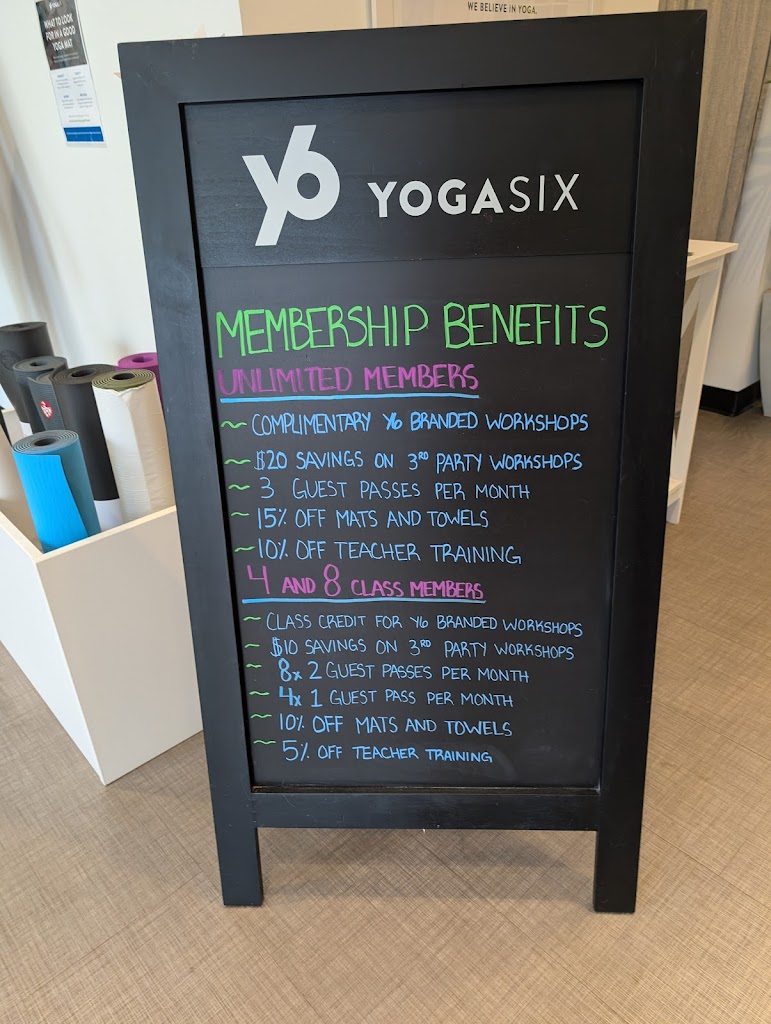 WE BELIEVE IN YOGA.
WHAT TO LOOK
FOR IN A GOOD
YOGA MAT
y6 YOGASIX
MEMBERSHIP BENEFITS
UNLIMITED MEMBERS
~ COMPLIMENTARY Y6 BRANDED WORKSHOPS
~ $20 SAVINGS ON 3RD PARTY WORKSHOPS
~ 3 GUEST PASSES PER MONTH
~ 15% OFF MATS AND TOWELS
~ 10% OFF TEACHER TRAINING
4 AND 8 CLASS MEMBERS
~ CLASS CREDIT FOR Y6 BRANDED WORKSHOPS
~ $10 SAVINGS ON 3RD PARTY WORKSHOPS
~ 8x 2 GUEST PASSES PER MONTH
~ 4x 1 GUEST PASS PER MONTH
~ 10% OFF MATS AND TOWELS
~ 5% OFF TEACHER TRAINING